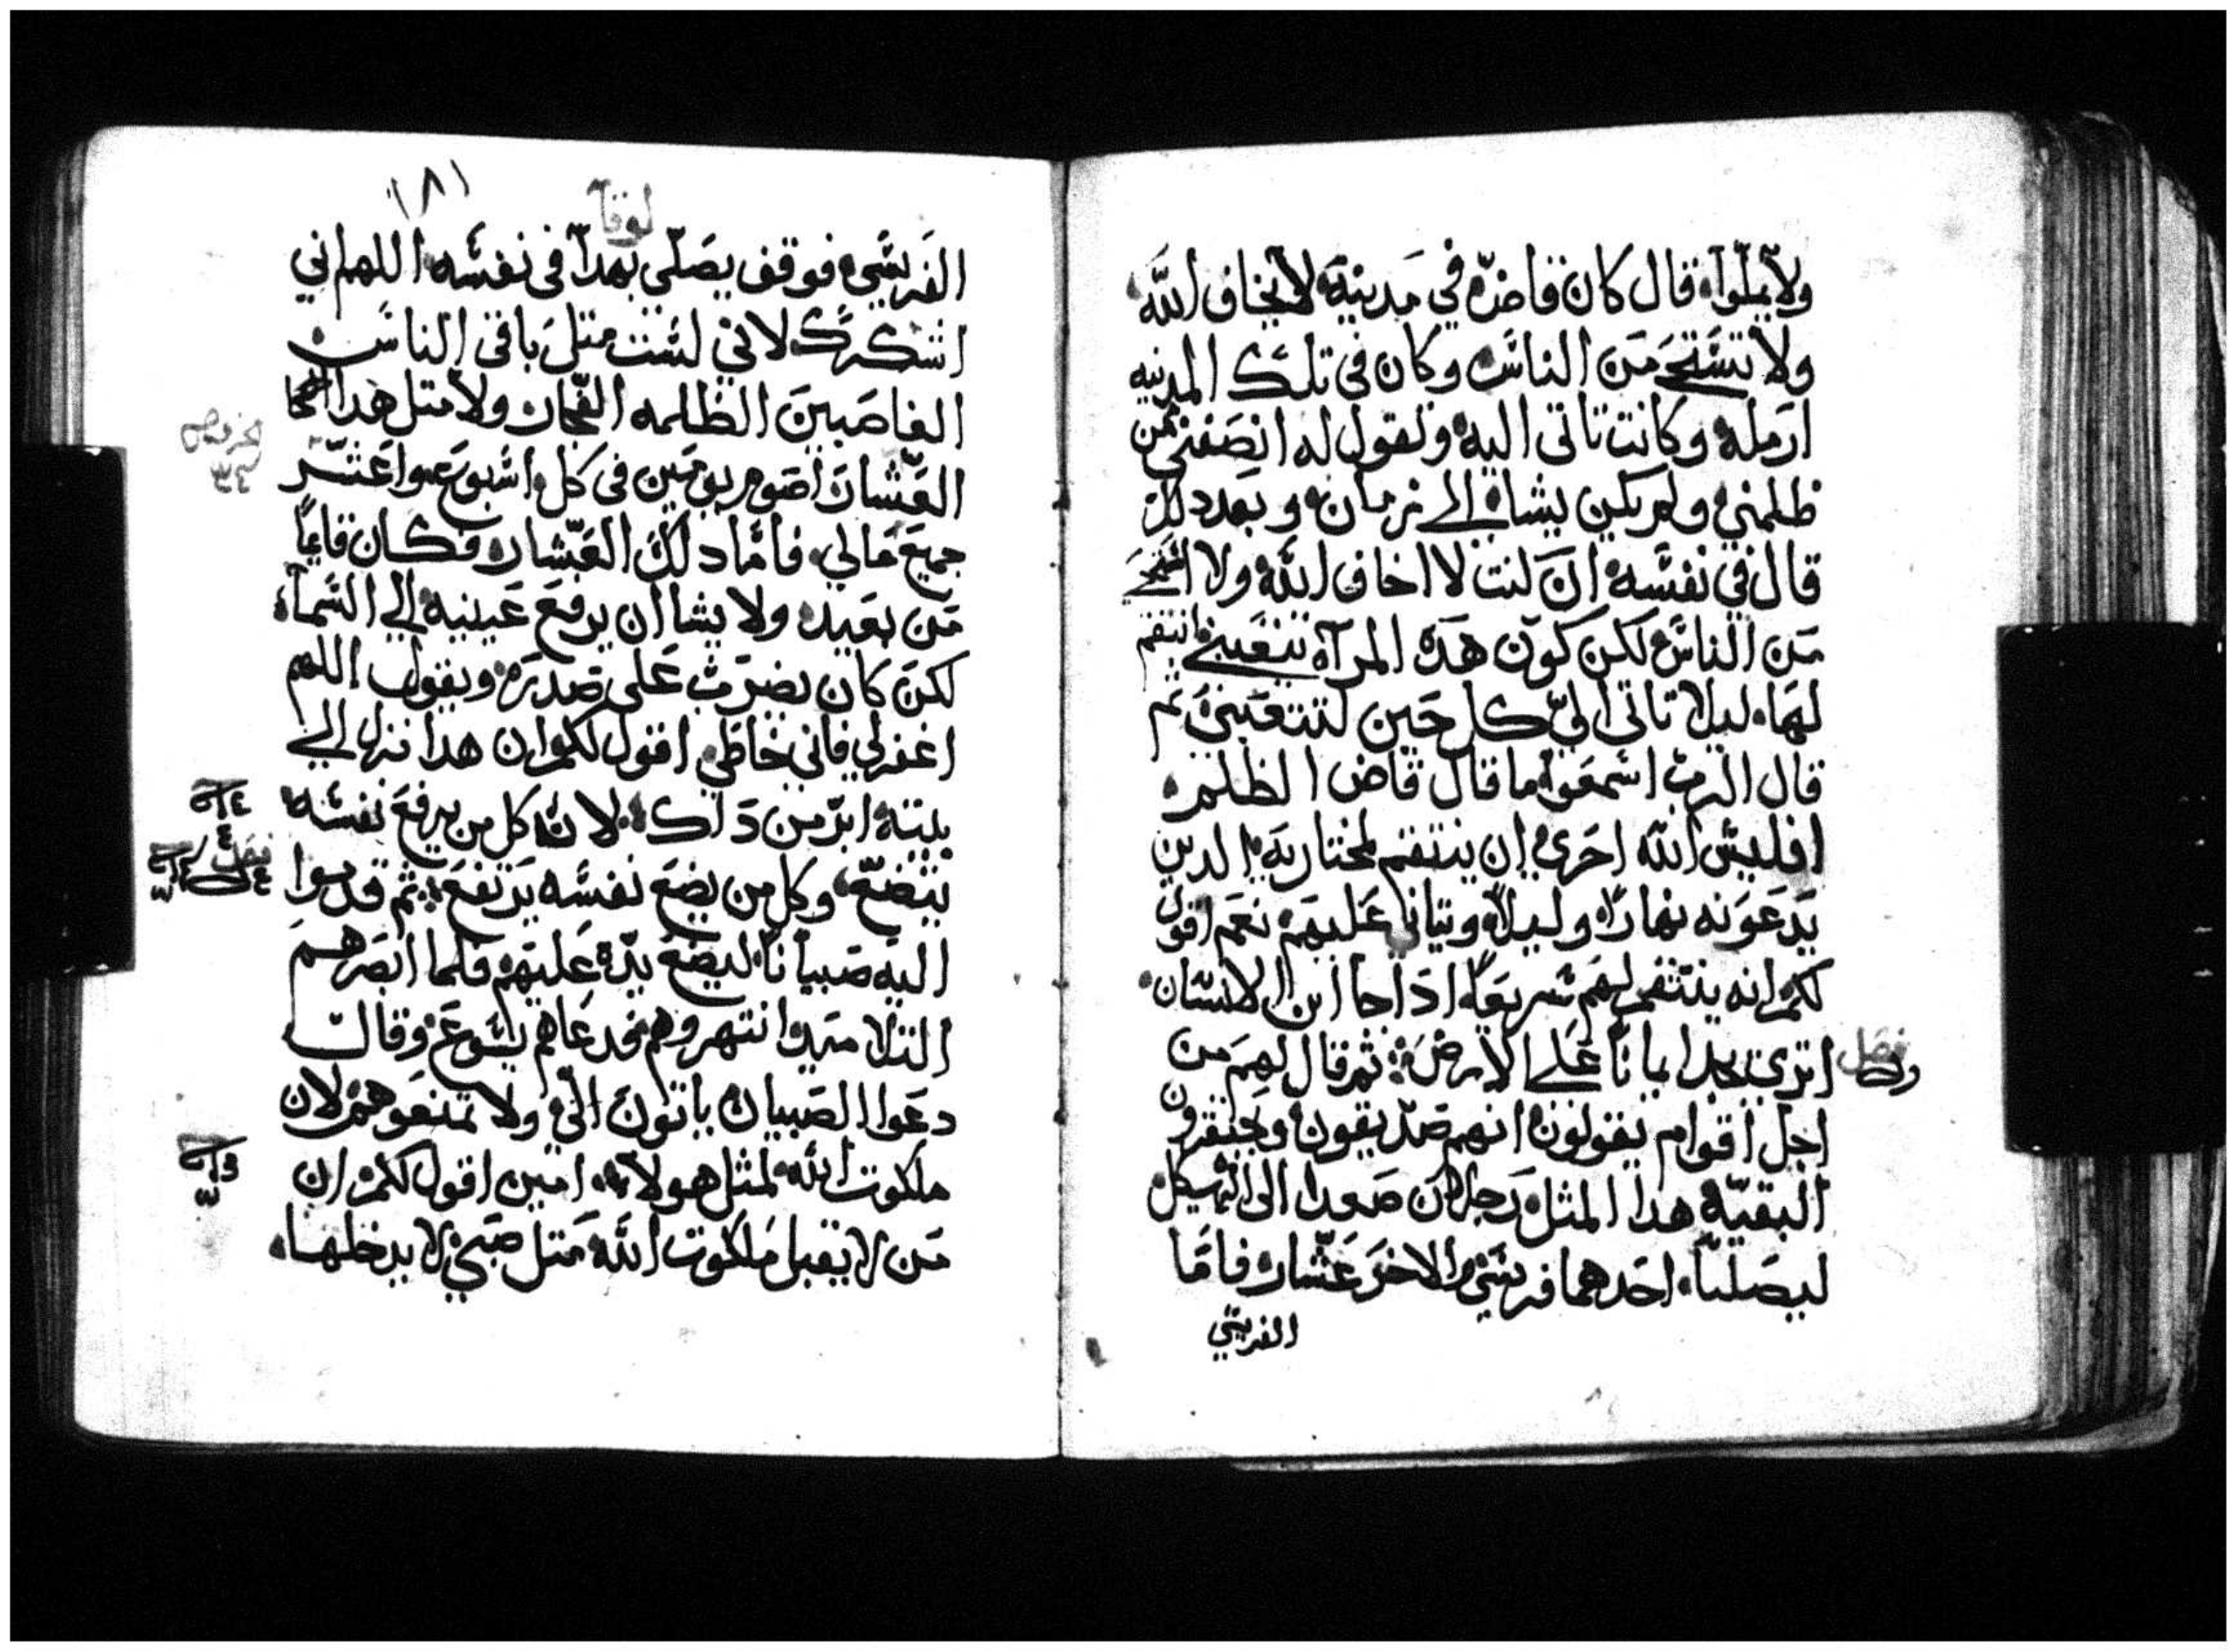 ولا يملوا قال كان قاض في مدينة لا يخاف الله
ولا يستحى من الناس وكان فى تلك المدينه
ارمله وكانت تاتى اليه وتقول له انصفنى ممن
ظلمني ولم يكن يشا الى زمان وبعد دلك
قال في نفسه ان كنت لا اخاف الله ولا استحى
من الناس لكن كون هده المرآه تتعبنى انتقم
لها ليلا تاتى الىّ كل حين لتتعبنى ثم
قال الرب اسمعوا ما قال قاض الظلم
افليس الله احرى ان ينتقم لمختاريه الدين
يدعونه نهارًا وليلاً ويتانا عليهم نعم اقول
لكم انه ينتقم لهم سريعًا ادا جا ابن الانسان
فصل
اترى يجد ايمانا على الارض ثم قال لهم من
اجل اقوام يقولون انهم صديقون ويحتقرون
البقيّة هدا المثل رجلان صعدا الى الهيكل
ليصليا احدهما فريسي والاخر عشار فاما
الفريسي
١٨١
لوقا
الفريسي فوقف يصلّى بهدا فى نفسه اللهم اني
اشكرك لاني لست متل باقى الناس
الغاصبين الظلمه الفجار ولا متل هدا
العشار اصوم يومين فى كل اسبوع واعشّر
جميع مالي فاما دلك العشار فكان قايمًا
من بعيد ولا يشا ان يرفع عينيه الى السمآء
لكن كان يضرب على صدره ويقول اللهم
اغفر لي فاني خاطي اقول لكم ان هدا نزل الى
بيته ابرّ من داك لانه كل من يرفع نفسه
فصل
يتضع وكل من يضع نفسه يرتفع ثم قدموا
اليه صبيانًا ليضع يده عليهم فلما ابصرهم
التلاميد انتهروهم فدعاهم يسوع وقال
دعوا الصبيان ياتون الي ولا تمنعوهم لان
ملكوت الله لمثل هولاء امين اقول لكم ان
من لا يقبل ملكوت الله متل صبي لا يدخلها